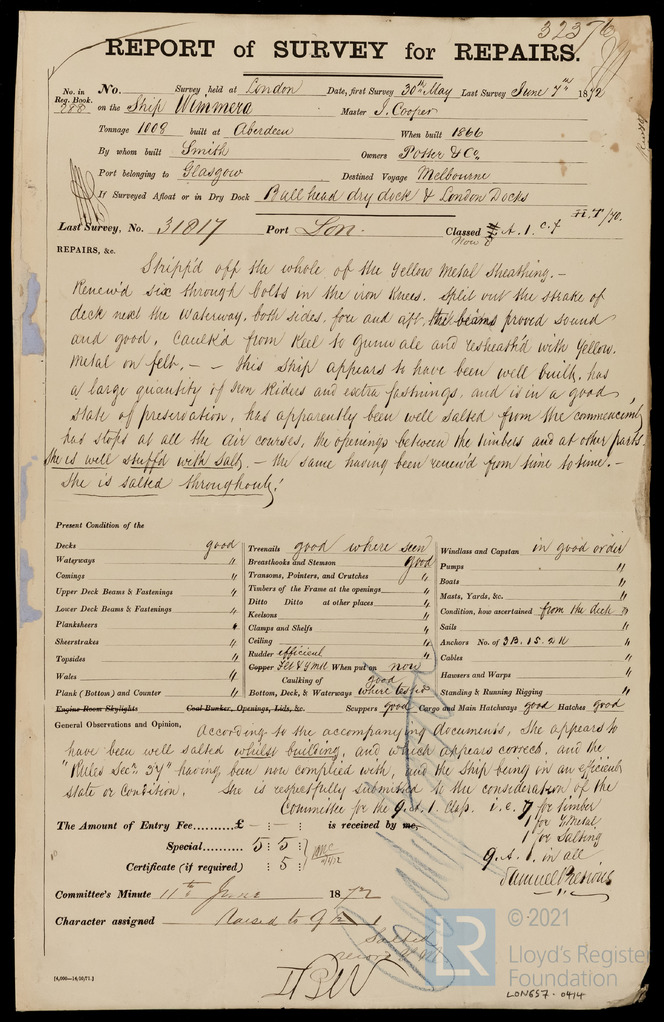 32376
REPORT of SURVEY for REPAIRS.
No. in Reg. Book. 288 No. Survey held at London Date, first Survey 30th May Last Survey June 7th 1872
on the Ship Wimmera Master J. Cooper
Tonnage 1008 built at Aberdeen When built 1866
By whom built Smith Owners Potter & Co.
Port belonging to Glasgow Destined Voyage Melbourne
If Surveyed Afloat or in Dry Dock Bull head dry dock & London Docks
Last Survey, No. 31817 Port Lon. Classed A. 1. C. F
REPAIRS, &c.
Stripp'd off the whole of the Yellow Metal Sheathing. –
Renew'd six through bolts in the iron Knees. Split out the strake of
deck next the Waterway, both sides, fore and aft, the beams proved sound
and good, Caulk'd from Keel to Gunwale and resheath'd with Yellow.
Metal on felt. – – This Ship appears to have been well built, has
a large quantity of Iron Riders and extra fastnings, and is in a good
state of preservation, has apparently been well salted from the commencing
has stops at all the air courses, the openings between the timbers and at other parts.
She is well stuff'd with Salt. – the same having been renew'd from time to time. –
She is salted throughout!
Present Condition of the
Decks good
Waterways "
Comings "
Upper Deck Beams & Fastenings "
Lower Deck Beams & Fastenings "
Planksheers "
Sheerstrakes "
Topsides "
Wales "
Plank (Bottom) and Counter "
Treenails good where seen
Breasthooks and Stemson good
Transoms, Pointers, and Crutches "
Timbers of the Frame at the openings "
Ditto Ditto at other places "
Keelsons "
Clamps and Shelfs "
Ceiling "
Rudder efficient "
Copper Felt & YM When put on now
Caulking of good
Bottom, Deck, & Waterways where tested
Windlass and Capstan in good order
Pumps "
Boats "
Masts, Yards, &c. "
Condition, how ascertained from the deck "
Sails "
Anchors No. of 3B. 1S. 2K "
Cables "
Hawsers and Warps "
Standing & Running Rigging "
Engine Room Skylights Coal Bunker, Openings, Lids, &c. Scuppers good Cargo and Main Hatchways good Hatches good
General Observations and Opinion, According to the accompanying documents, She appears to
have been well salted whilst building, and which appears correct, and the
"Rules Secn. 34" having been now complied with, and the Ship being in an efficient
state or Condition. She is respectfully submitted to the consideration of the
Committee for the 9. A. 1 Class. i. e. 7 for timber
1 for YMetal
1 for Salting
9. A. 1. in all
The Amount of Entry Fee £ - : - : is received by me,
Special 5 : 5 :
Certificate (if required) : 5 :
Committee's Minute 11th June 1872
Character assigned Raised to 9
Salted
[4,000—14/10/71.]
© 2021
LR
Lloyd's Register
Foundation
LON657-0414